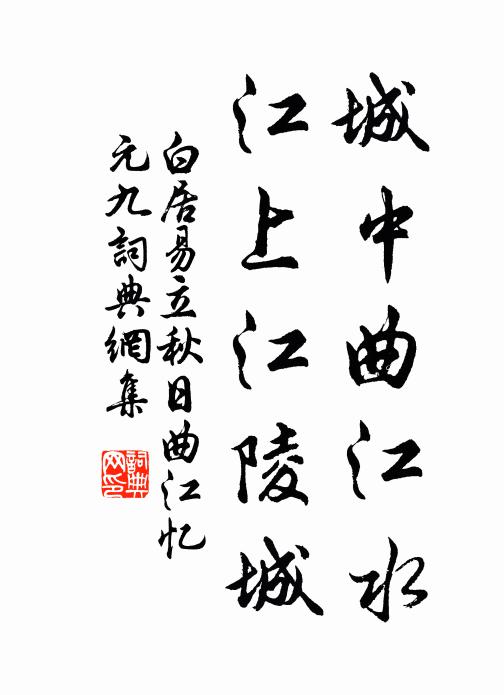 城中曲江水
江上江陵城
白居易立秋日曲江忆
元九詞典網集
詞典
网印